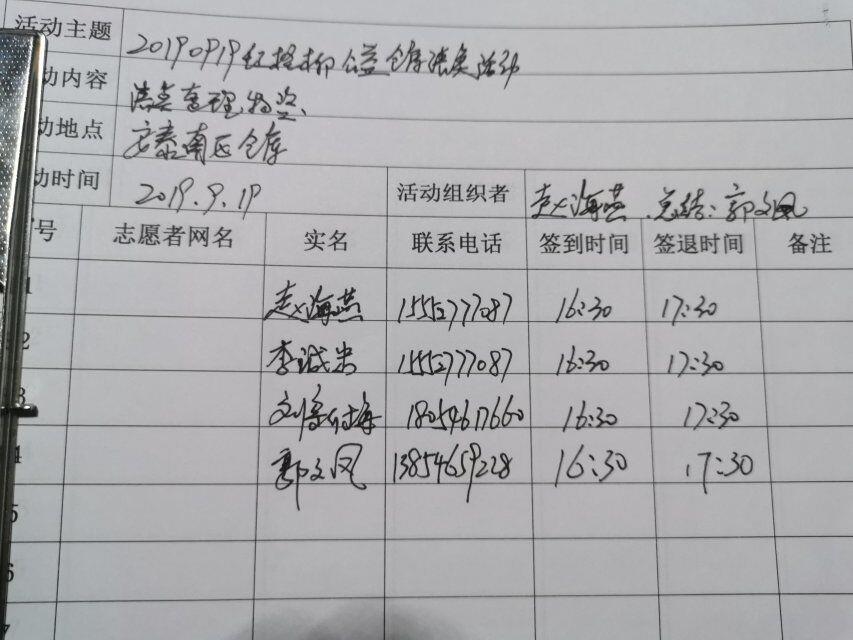 活动主题 20190919红柽柳公益仓库清负活动
动内容 清点整理物资、
动地点 安泰南区仓库
动时间 2019.9.19 活动组织者 赵海燕 总结:郭文凤
号 志愿者网名 实名 联系电话 签到时间 签退时间 备注
1 赵海燕 15552777087 16:30 17:30
2 李诚忠 15552777087 16:30 17:30
3 刘海 18054617660 16:30 17:30
4 郭文凤 13854659228 16:30 17:30
5
6
7